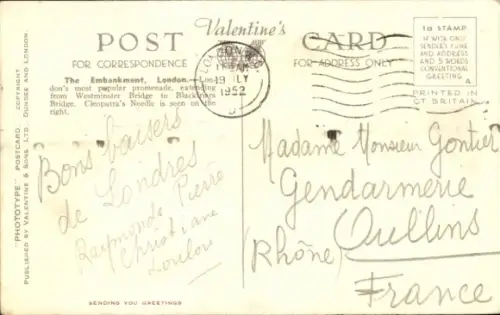 Valentine's
POST CARD
FOR CORRESPONDENCE
FOR ADDRESS ONLY
The Embankment, London.—Lon-
don's most popular promenade, extending
from Westminster Bridge to Blackfriars
Bridge. Cleopatra's Needle is seen on the
right.
LONDON
19 JLY
1952
1d STAMP
IF WITH ONLY
SENDER'S NAME
AND ADDRESS
AND 5 WORDS
CONVENTIONAL
GREETING
A
PRINTED IN
GT BRITAIN
Bons baisers
de Londres
Raymonde Pierre
Christiane
Loulou
Madame Monsieur Gontier
Gendarmerie
Oullins
(Rhône)
France
"PHOTOTYPE" POSTCARD COPYRIGHT
PUBLISHED BY VALENTINE & SONS LTD. DUNDEE AND LONDON.
SENDING YOU GREETINGS